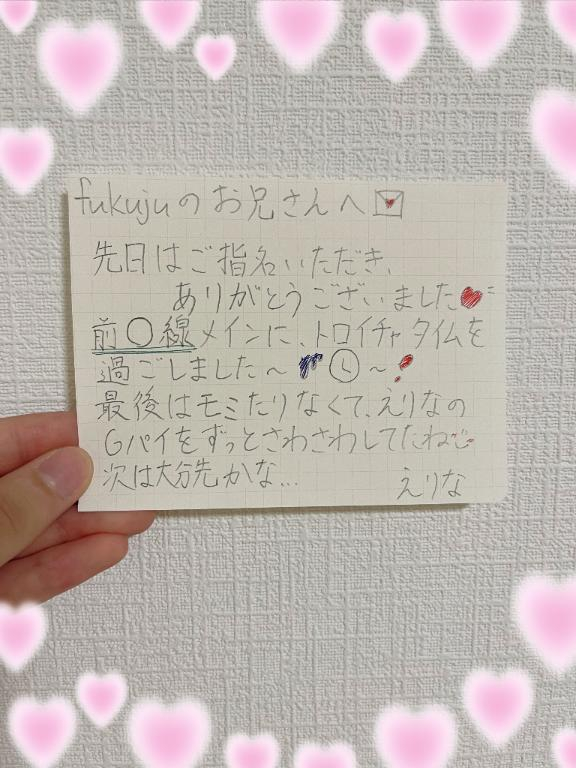 fukujuのお兄さんへ
先日はご指名いただき、
ありがとうございました
前〇線メインに、トロイチャタイムを
過ごしました〜 〜
最後はモミたりなくて、えりなの
Gパイをずっとさわさわしてたね
次は大分先かな…
えりな